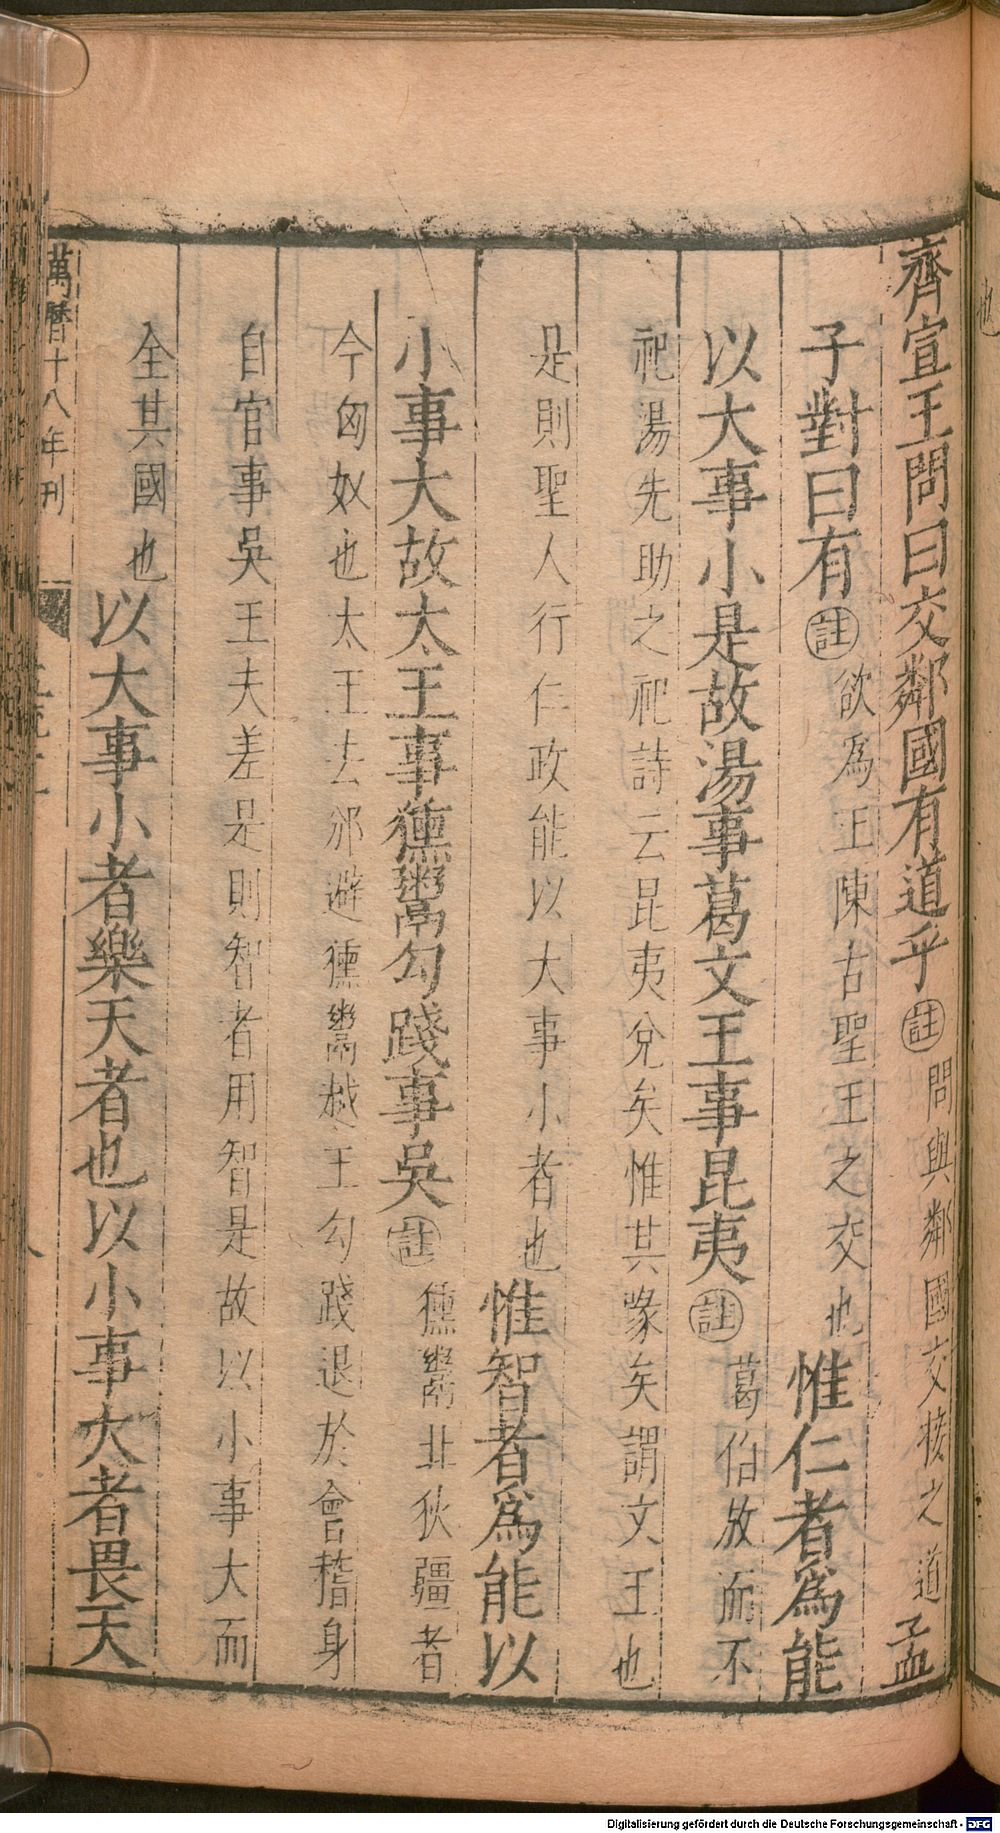 齊宣王問曰交鄰國有道乎註問與鄰國交接之道孟
子對曰有註欲爲王陳古聖王之交也惟仁者爲能
以大事小是故湯事葛文王事昆夷註葛伯放而不
祀湯先助之祀詩云昆夷兌矣惟其喙矣謂文王也
是則聖人行仁政能以大事小者也惟智者爲能以
小事大故太王事獯鬻勾踐事吳註獯鬻北狄疆者
今匈奴也太王去邠避獯鬻越王勾踐退於會稽身
自官事吳王夫差是則智者用智是故以小事大而
全其國也以大事小者樂天者也以小事大者畏天
萬曆十八年刊
Digitalisierung gefördert durch die Deutsche Forschungsgemeinschaft - DFG